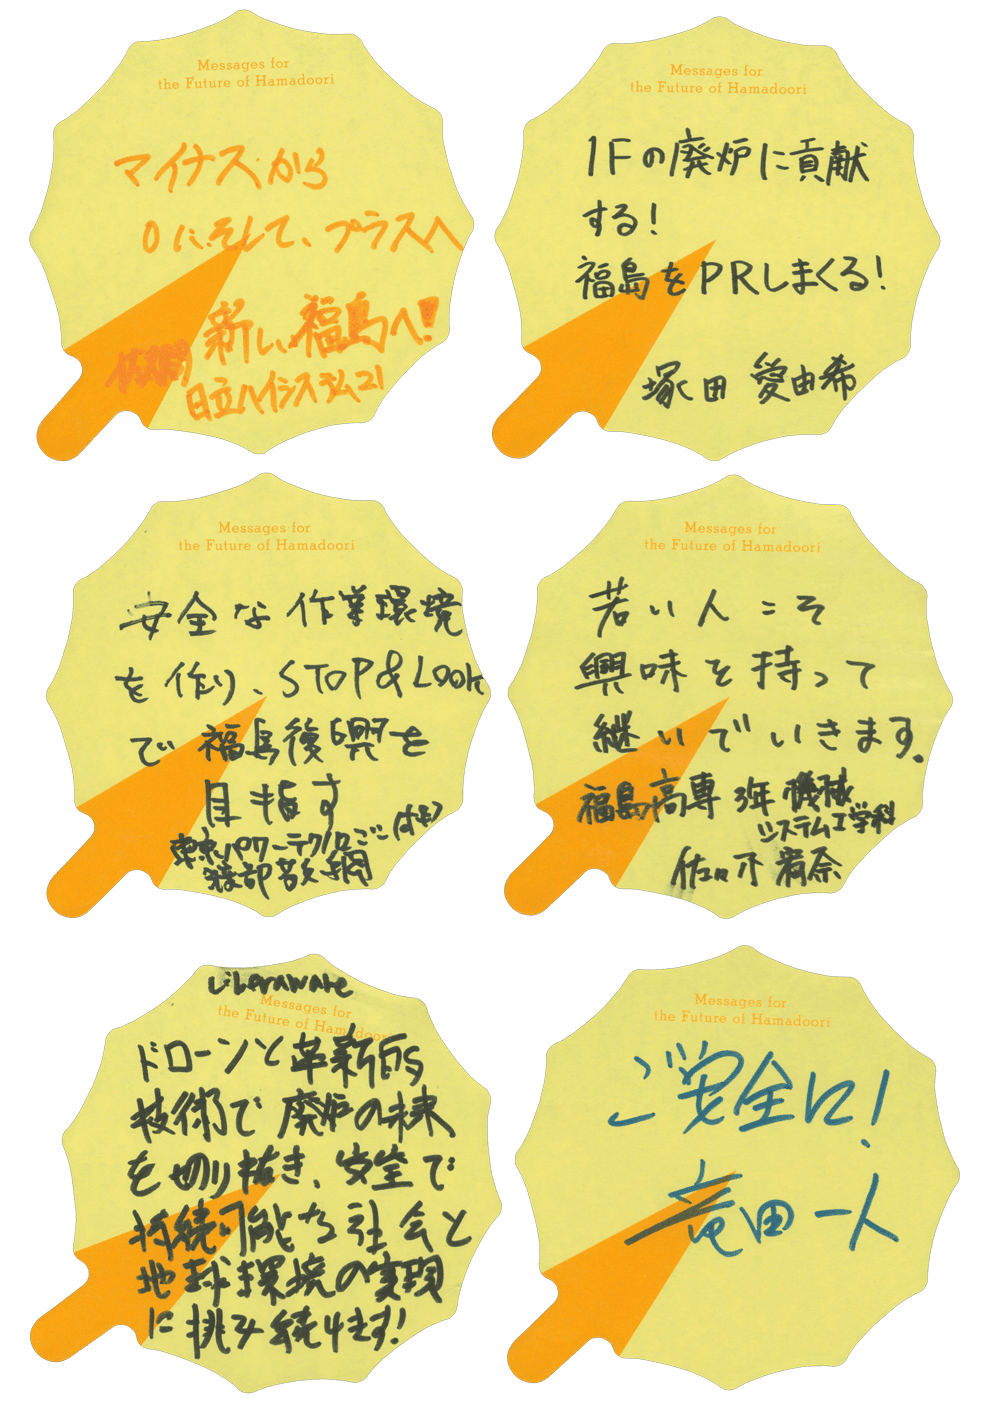 Messages for
the Future of Hamadoori
マイナスから
0に.そして、プラスへ
新しい福島へ!
佐々間
日立ハイシステム21
Messages for
the Future of Hamadoori
1Fの廃炉に貢献
する!
福島をPRしまくる!
塚田 愛由希
Messages for
the Future of Hamadoori
安全な作業環境
を作り、STOP&Look
で福島復興を
目指す
東京パワーテクノロジー(株)
綾部
Messages for
the Future of Hamadoori
若い人こそ
興味を持って
継いでいきます。
福島高専 3年 機械
システム工学科
佐々木
Liberaware
Messages for
the Future of Hamadoori
ドローンと革新的
技術で廃炉の未来
を切り拓き、安全で
持続可能な社会と
地球環境の実現
に挑み続けます!
Messages for
the Future of Hamadoori
ご安全に!
竜田一人